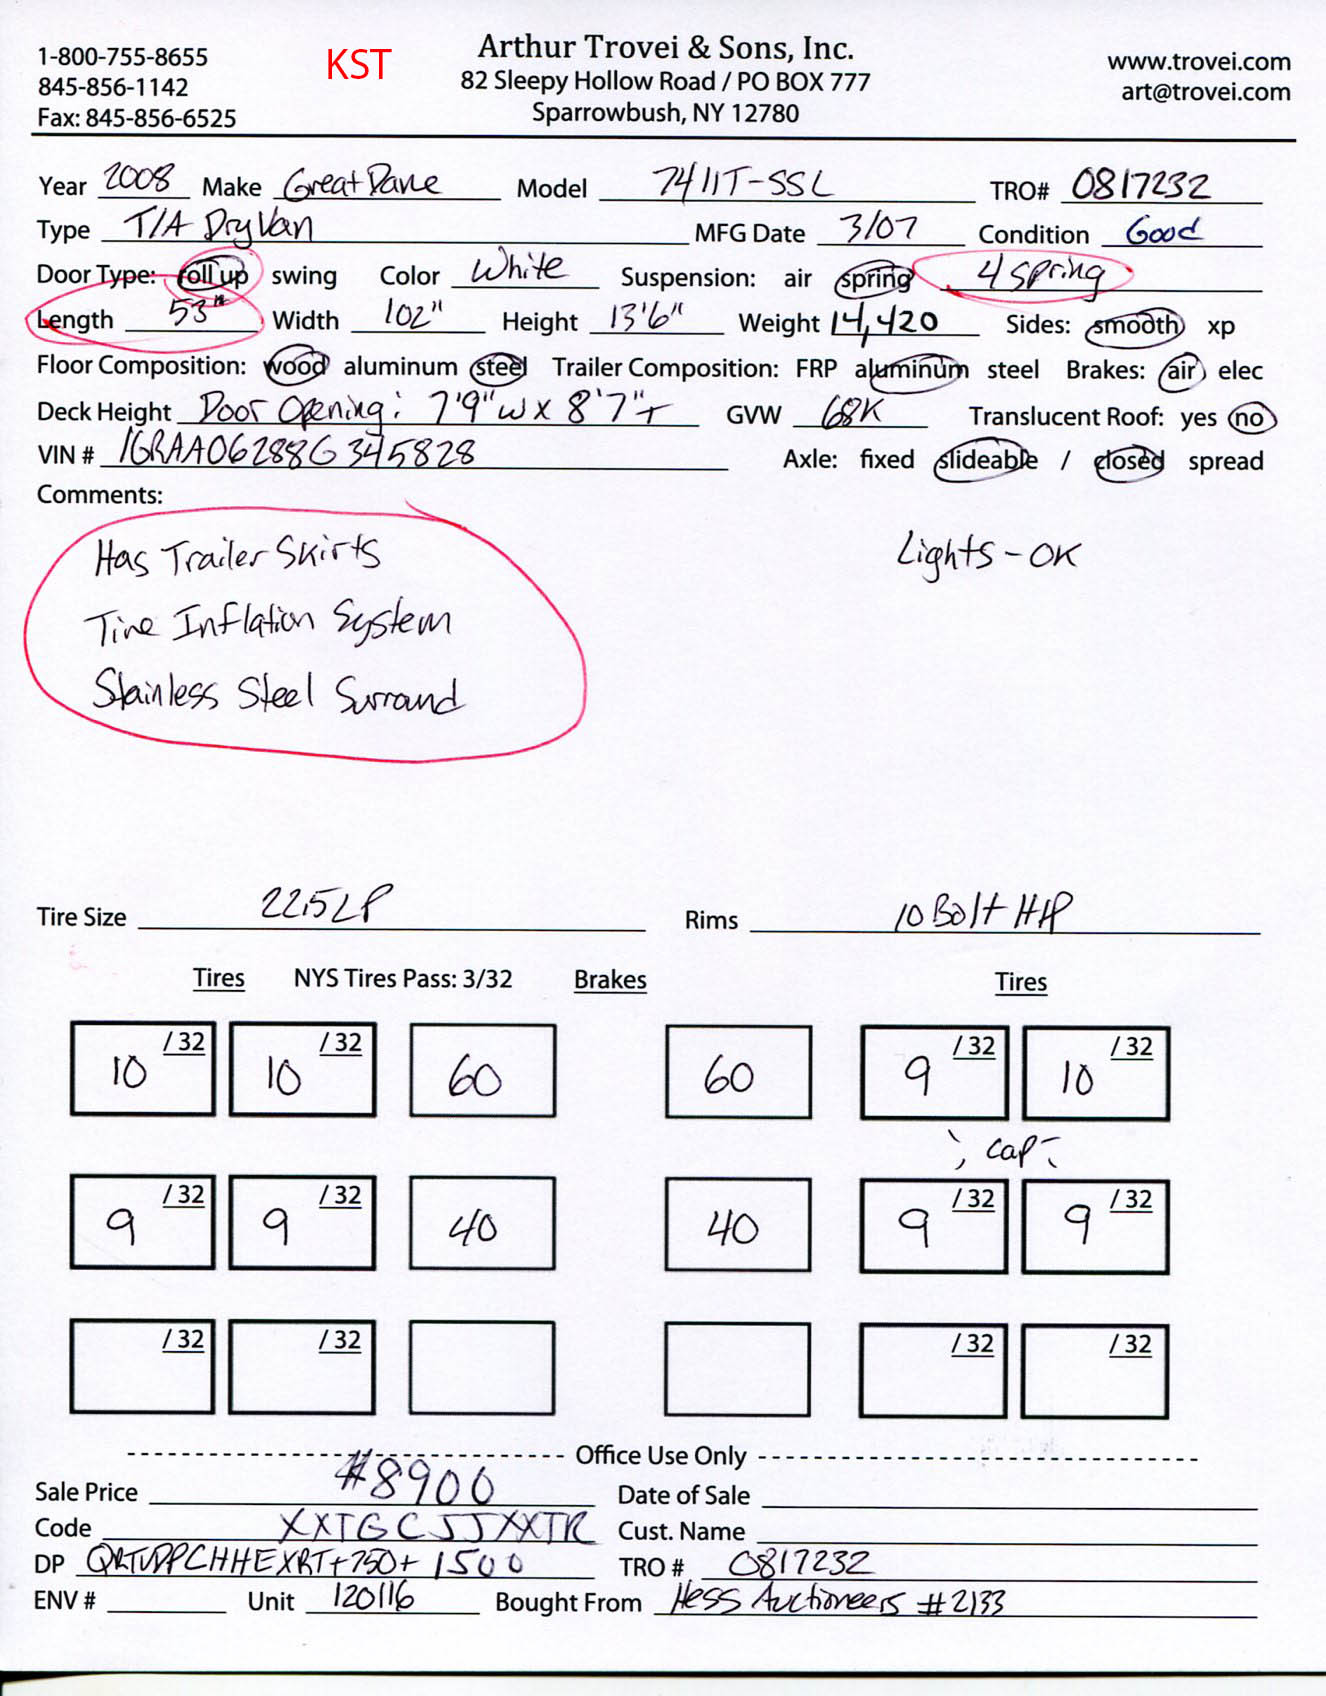 1-800-755-8655
845-856-1142
Fax: 845-856-6525
KST
Arthur Trovei & Sons, Inc.
82 Sleepy Hollow Road / PO BOX 777
Sparrowbush, NY 12780
www.trovei.com
art@trovei.com
Year 2008 Make Great Dane Model 7411T-SSL TRO# 0817232
Type T/A Dry Van MFG Date 3/07 Condition Good
Door Type: roll up swing Color White Suspension: air spring 4 spring
Length 53" Width 102" Height 13'6" Weight 14,420 Sides: smooth xp
Floor Composition: wood aluminum steel Trailer Composition: FRP aluminum steel Brakes: air elec
Deck Height Door Opening: 7'9"W x 8'7"T GVW 68K Translucent Roof: yes no
VIN # 1GRAA06288G345828 Axle: fixed slideable / closed spread
Comments:
Has Trailer Skirts
Lights - OK
Tire Inflation System
Stainless Steel Surround
Tire Size 22.5LP Rims 10 Bolt HP
Tires NYS Tires Pass: 3/32 Brakes Tires
10 /32 10 /32 60 60 9 /32 10 /32
cap
9 /32 9 /32 40 40 9 /32 9 /32
/32 /32 /32 /32
Office Use Only
Sale Price #8900 Date of Sale
Code XXTGCJJXXTR Cust. Name
DP +750+1500 TRO # 0817232
ENV # Unit 120116 Bought From Hess Auctioneers #2133